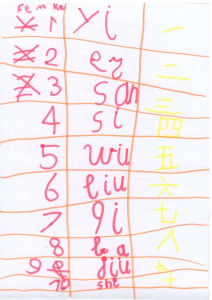 1 yi 一
2 er 二
3 san 三
4 si 四
5 wu 五
6 liu 六
7 qi 七
8 ba 八
9 jiu 九
10 shi 十